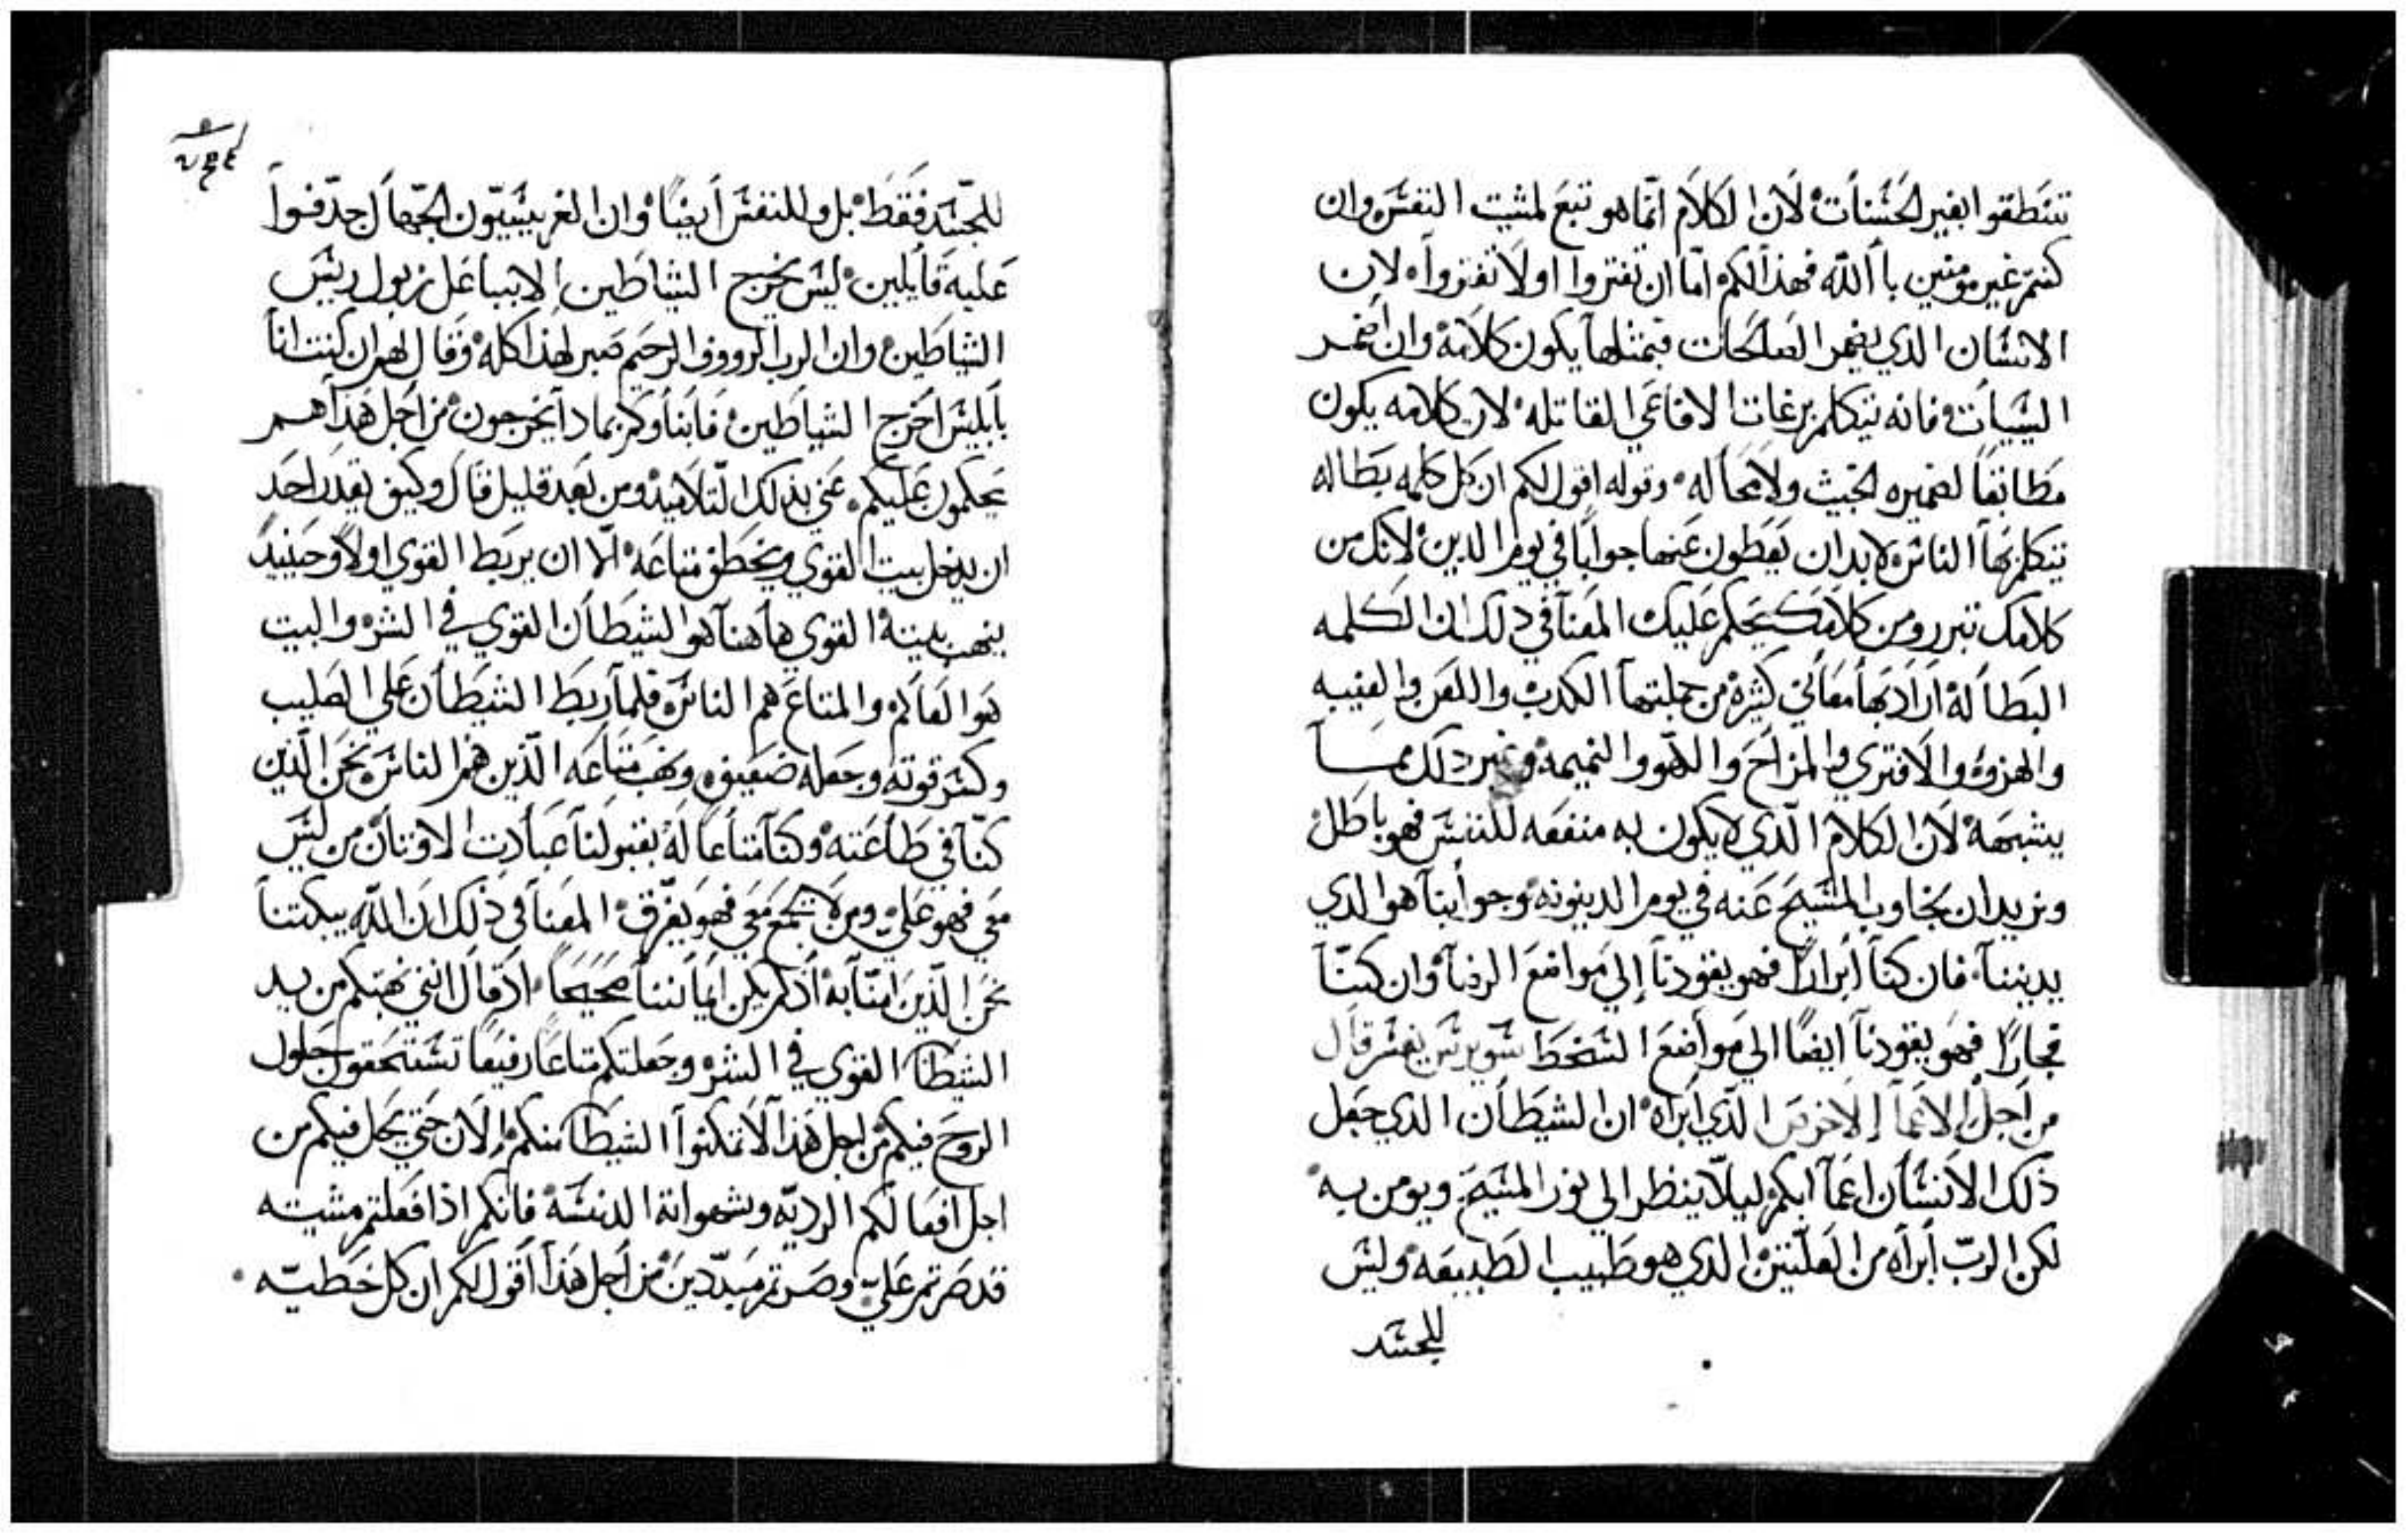 تنتطقوا بغير الحسنات لان الكلام انما هو تبع لمثيت النفس وان
كنتم غير مومنين بالله فهذا لكم اما ان تفتروا اولا تفتروا لان
الانسان الذي يضمر الصالحات فبمثلها يكون كلامه وان اضمر
السيات فانه يتكلم برغات الافاعي القاتله لان كلامه يكون
مطابقا لضميره الخبيث ولا محاله وقوله اقول لكم ان كل كلمه بطاله
يتكلم بها الناس لابد ان يعطون عنها جوابا في يوم الدين لانك من
كلامك تبرر ومن كلامك يحكم عليك المعنا في ذلك ان الكلمه
البطاله اراد بها معاني كثيره من جملتها الكدب واللعن والغيبه
والهزوه والافتري والمزاح واللهو والنميمه وغير ذلك مما
يشبهه لان الكلام الذي لا يكون به منفعه للنفس فهو باطل
ونريد ان نجاوب المسيح عنه في يوم الدينونه وجوابنا هو الذي
يديننا فان كنا ابرارا فهو يقودنا الي مواضع الرضا وان كنا
فجارا فهو يقودنا ايضا الي مواضع السخط سويرس يفسر قال
من اجل الاعما الاخرص الذي ابراه ان الشيطان الذي جعل
ذلك الانسان اعما ابكم ليلا ينظر الي نور المسيح ويومن به
لكن الرب ابراه من العلتين الذي هو طبيب الطبيعه وليس
للجسد
٢٤٤
للجسد فقط بل وللنفس ايضا وان الفريسيون الجهال جدفوا
عليه قايلين ليس يخرج الشياطين الا بباعل زبول رييس
الشياطين وان الرب الرووف الرحيم صبر لهذا كله وقال لهم ان كنت انا
بابليس اخرج الشياطين فابناوكم بمادا يخرجون من اجل هذا هم
يحكمون عليكم عني بذلك التلاميذ ومن بعد قليل قال وكيف يقدر احد
ان يدخل بيت القوي ويخطف متاعه الا ان يربط القوي اولا وحينيذ
ينهب بيته القوي هاهنا هو الشيطان القوي في الشر والبيت
هو العالم والمتاع هم الناس فلما ربط الشيطان علي الصليب
وكسر قوته وجعله ضعيف ونهب متاعه الذين هم الناس نحن الذين
كنا في طاعته وكنا متاعا له بقبولنا عبادت الاوتان من ليس
معي فهو علي ومن لا يجمع معي فهو يفرق المعنا في ذلك ان الله يبكتنا
نحن الذين امنا به اذ لم يكن ايماننا صحيحا اد قال انني نهبتكم من يد
الشيطان القوي في الشر وجعلتكم متاعا رفيعا تستحقون حلول
الروح فيكم من اجل هذا لا تمكنوا الشيطان منكم الان حتي يحل فيكم من
اجل افعالكم الرديه وشهواته الدنسه فانكم اذا فعلتم مشيته
قد صرتم علي وصرتم مبددين من اجل هذا اقول لكم ان كل خطيه